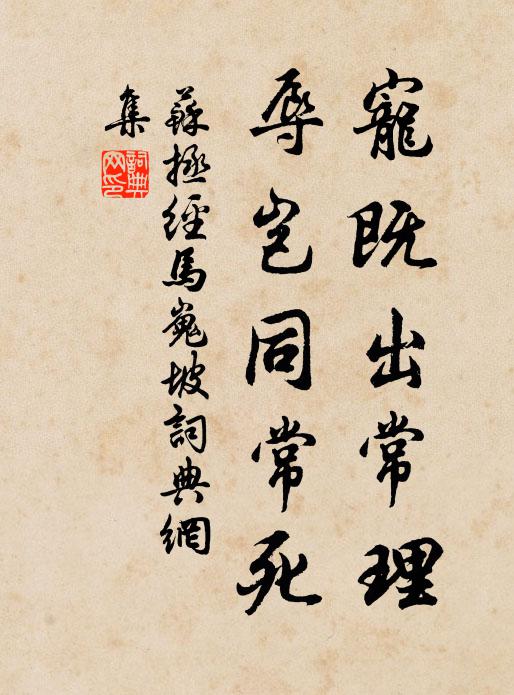 寵既出常理
辱豈同常死
蘇拯經馬嵬坡詞典網
集
詞典
网印